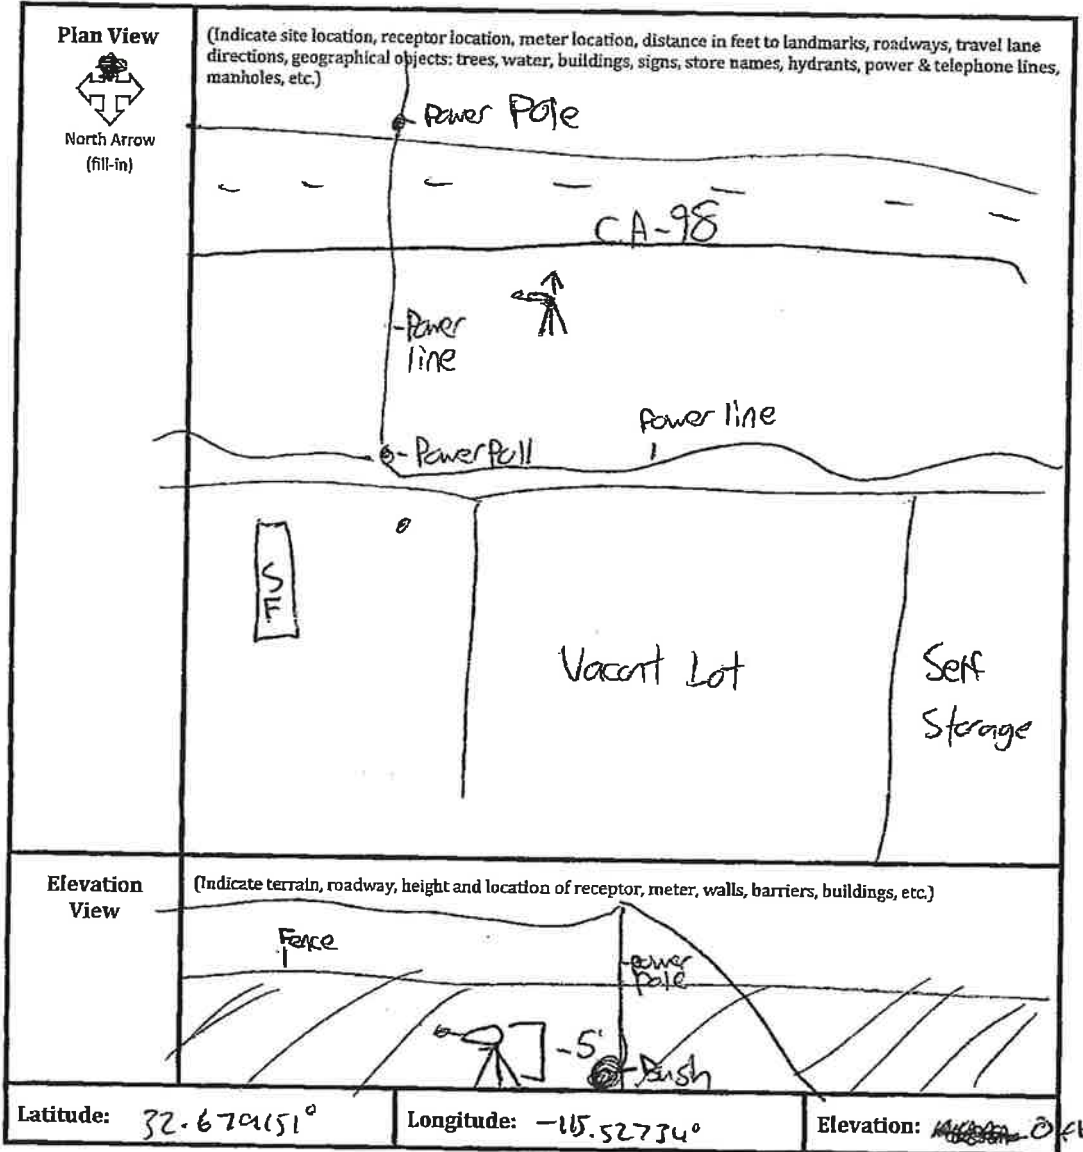 Plan View
North Arrow
(fill-in)
(Indicate site location, receptor location, meter location, distance in feet to landmarks, roadways, travel lane
directions, geographical objects: trees, water, buildings, signs, store names, hydrants, power & telephone lines,
manholes, etc.)
Power Pole
CA-98
Power
line
Power line
Power Poll
SF
Vacant Lot
Self
Storage
Elevation
View
(Indicate terrain, roadway, height and location of receptor, meter, walls, barriers, buildings, etc.)
Fence
power
pole
5'
Bush
Latitude: 32.679151°
Longitude: -115.52734°
Elevation: 0 ft